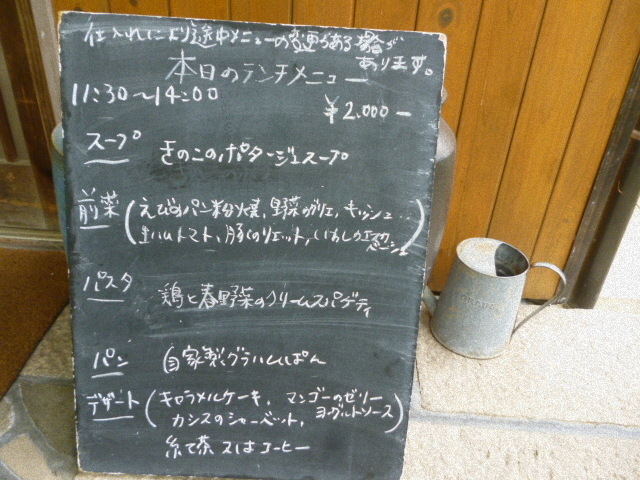 仕入れにより途中メニューの変更がある場合が
あります。
本日のランチメニュー
11:30~14:00
¥2.000-
スープ
きのこのポタージュスープ
前菜
(えびのパン粉焼, 野菜のグリエ, キッシュ...
生ハムトマト, 豚のリエット, いわしのエスカベーシュ)
パスタ
鶏と春野菜のクリームスパゲティ
パン
自家製グラハムぱん
デザート
(キャラメルケーキ, マンゴーのゼリー
カシスのシャーベット, ヨーグルトソース)
紅茶 又は コーヒー